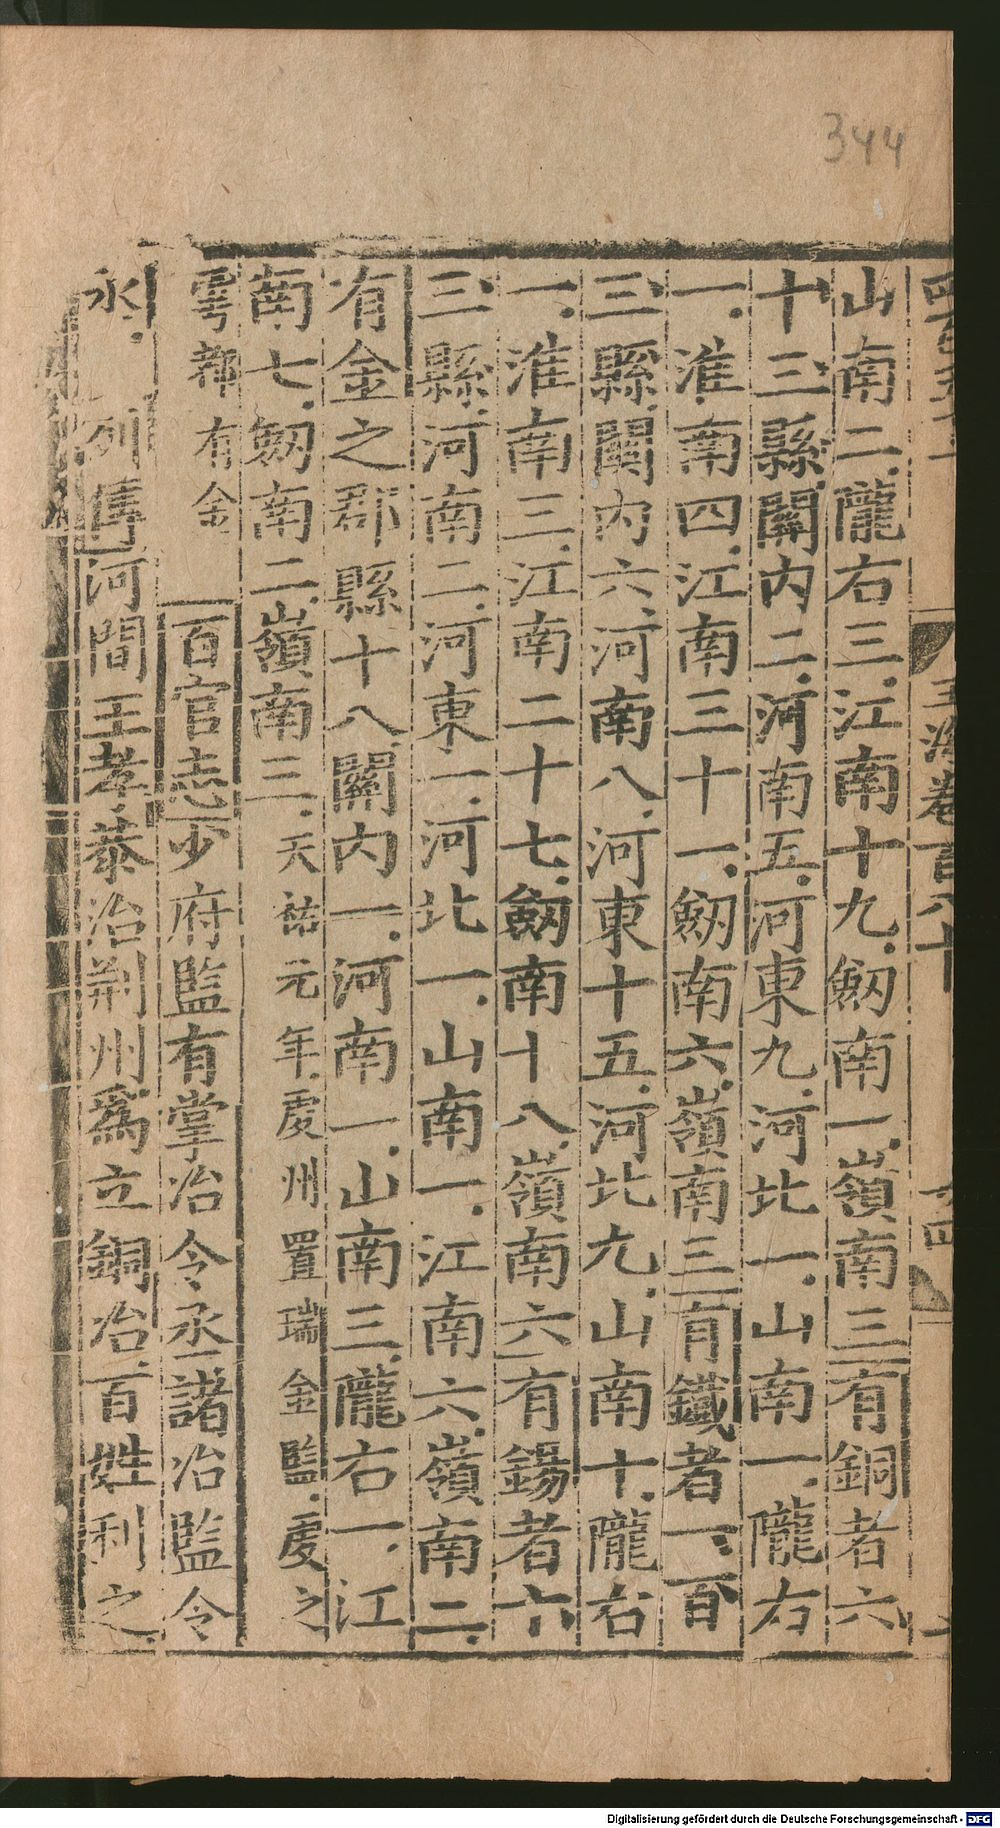 344
玉海卷百八十
山南二隴右三江南十九劒南一嶺南三有銅者六
十三縣關内二河南五河東九河北一山南一隴右
一淮南四江南三十一劒南六嶺南三有鐵者一百
三縣關内六河南八河東十五河北九山南十隴右
一淮南三江南二十七劒南十八嶺南六有錫者六
三縣河南二河東一河北一山南一江南六嶺南二
有金之郡縣十八關内一河南一山南三隴右一江
南七劒南二嶺南三天祐元年虔州置瑞金監虔之
雩都有金百官志少府監有掌冶令丞諸冶監令
丞列傳河間王孝恭治荆州爲立銅冶百姓利之
Digitalisierung gefördert durch die Deutsche Forschungsgemeinschaft - DFG